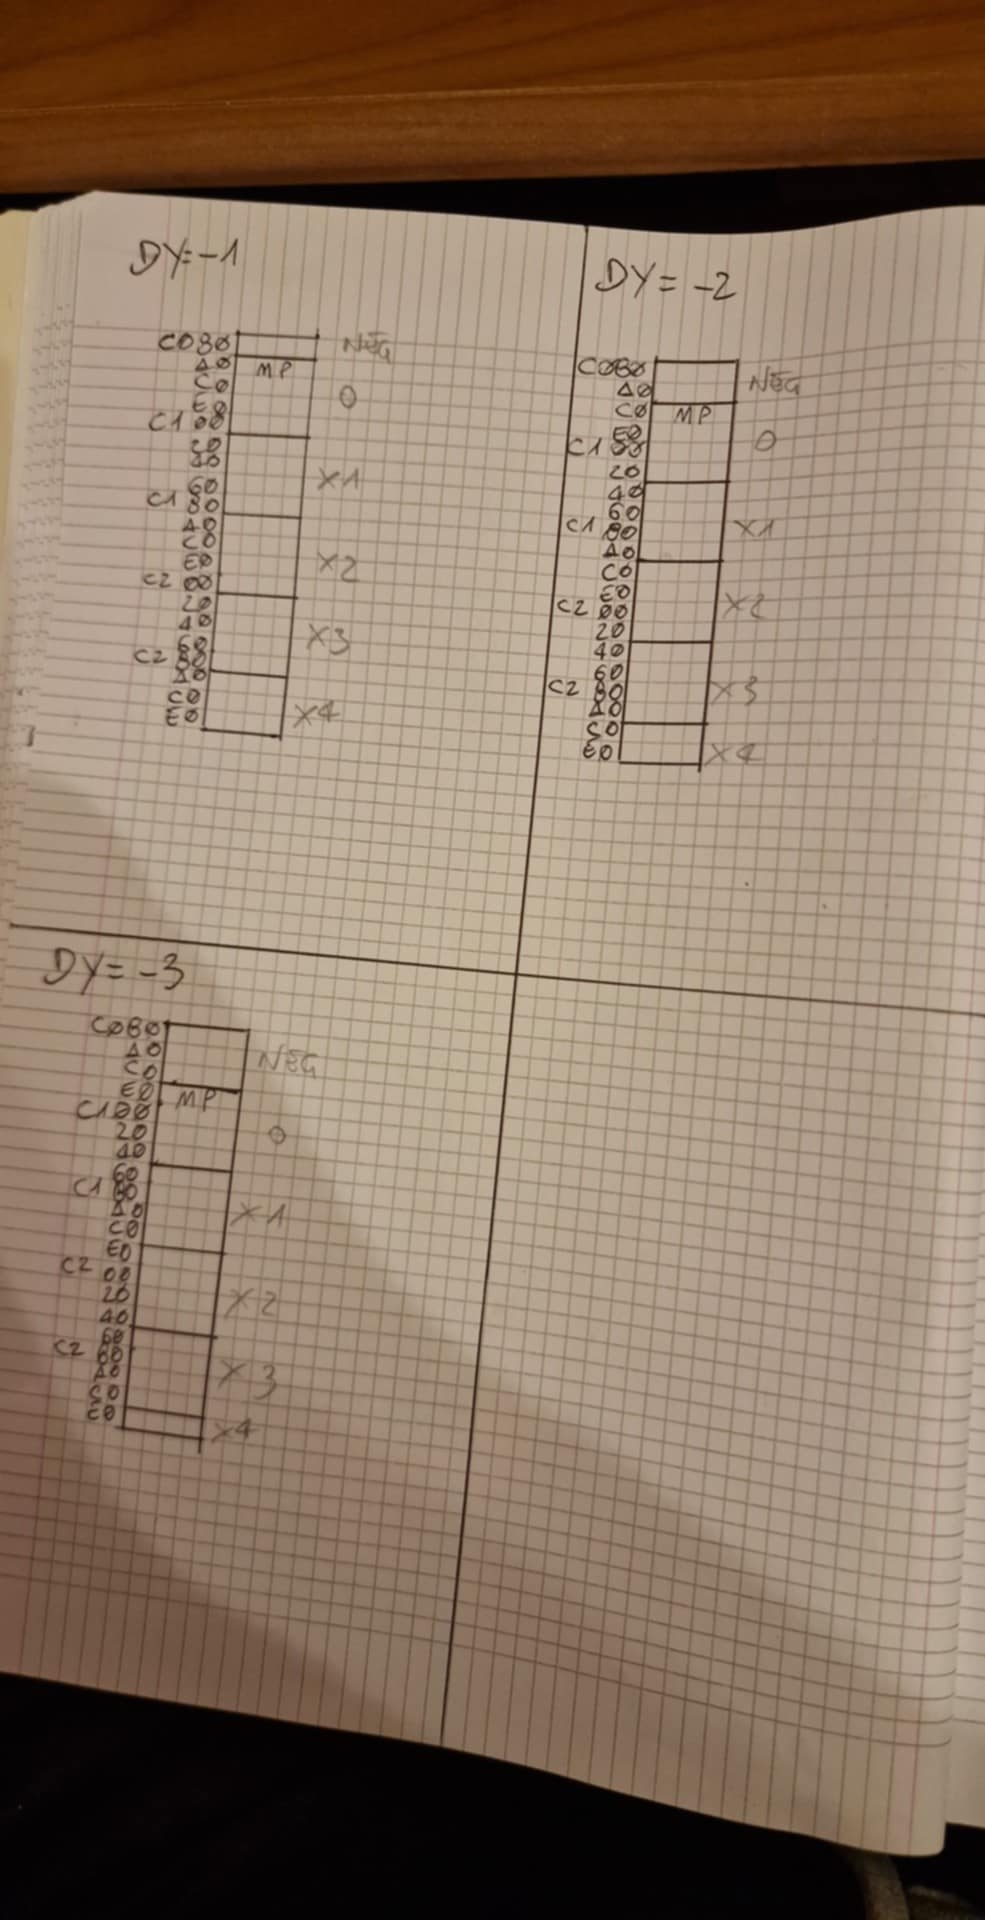 DY=-1
C080
A0 MP NEG
C0
E0 0
C1 00
20
40
60 X1
C1 80
A0
C0
E0 X2
C2 00
20
40
60 X3
C2 80
A0
C0
E0 X4
DY=-2
C080
A0 NEG
C0 MP
E0
C1 00 0
20
40
60
C1 80 X1
A0
C0
E0
C2 00 X2
20
40
60
C2 80 X3
A0
C0
E0 X4
DY=-3
C080
A0
C0 NEG
E0 MP
C100
20 0
40
60
C1 80
A0 X1
C0
E0
C2 00
20 X2
40
60
C2 80
A0 X3
C0
E0 X4